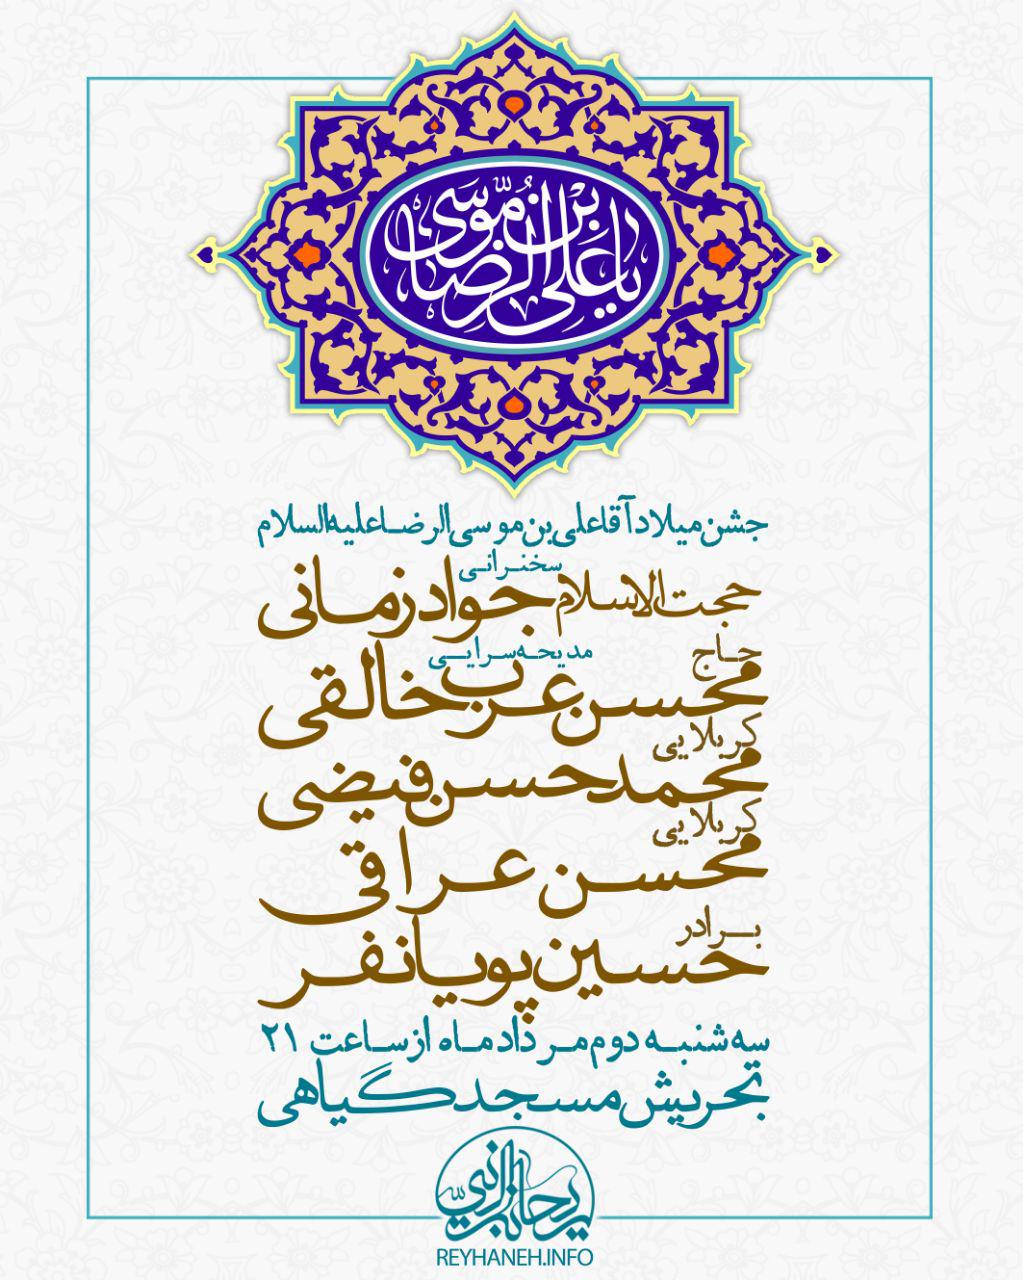 یا علی بن موسی الرضا
جشن میلاد آقا علی بن موسی الرضا علیه السلام
سخنرانی
حجت الاسلام جواد زمانی
مدیحه سرایی
حاج محسن عرب خالقی
کربلایی محمد حسن فیضی
کربلایی محسن عراقی
برادر حسین پویانفر
سه شنبه دوم مرداد ماه از ساعت ۲۱
تجریش مسجد گیاهی
ریحانة النبی
REYHANEH.INFO